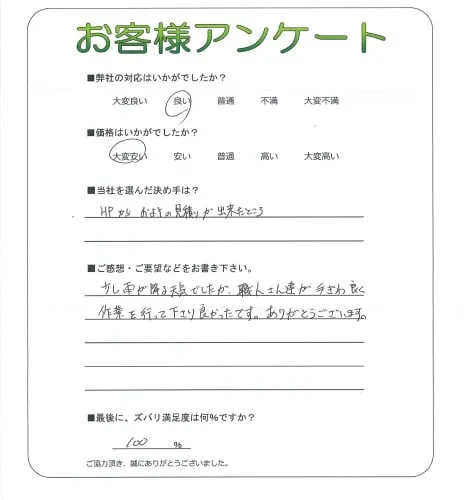 お客様アンケート
■弊社の対応はいかがでしたか？
大変良い 良い 普通 不満 大変不満
■価格はいかがでしたか？
大変安い 安い 普通 高い 大変高い
■当社を選んだ決め手は？
HPから およその見積りが出来たところ
■ご感想・ご要望などをお書き下さい。
少し雨が降る天気でしたが、職人さん達が手ぎわ良く
作業を行って下さり良かったです。ありがとうございます。
■最後に、ズバリ満足度は何%ですか？
100 %
ご協力頂き、誠にありがとうございました。